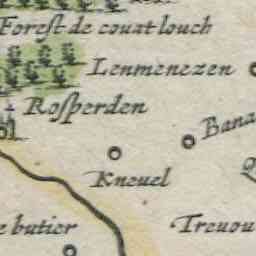 Forest de couat louch
Lenmenezen
Rosperden
Bana
Kneuel
Treuou
e butier